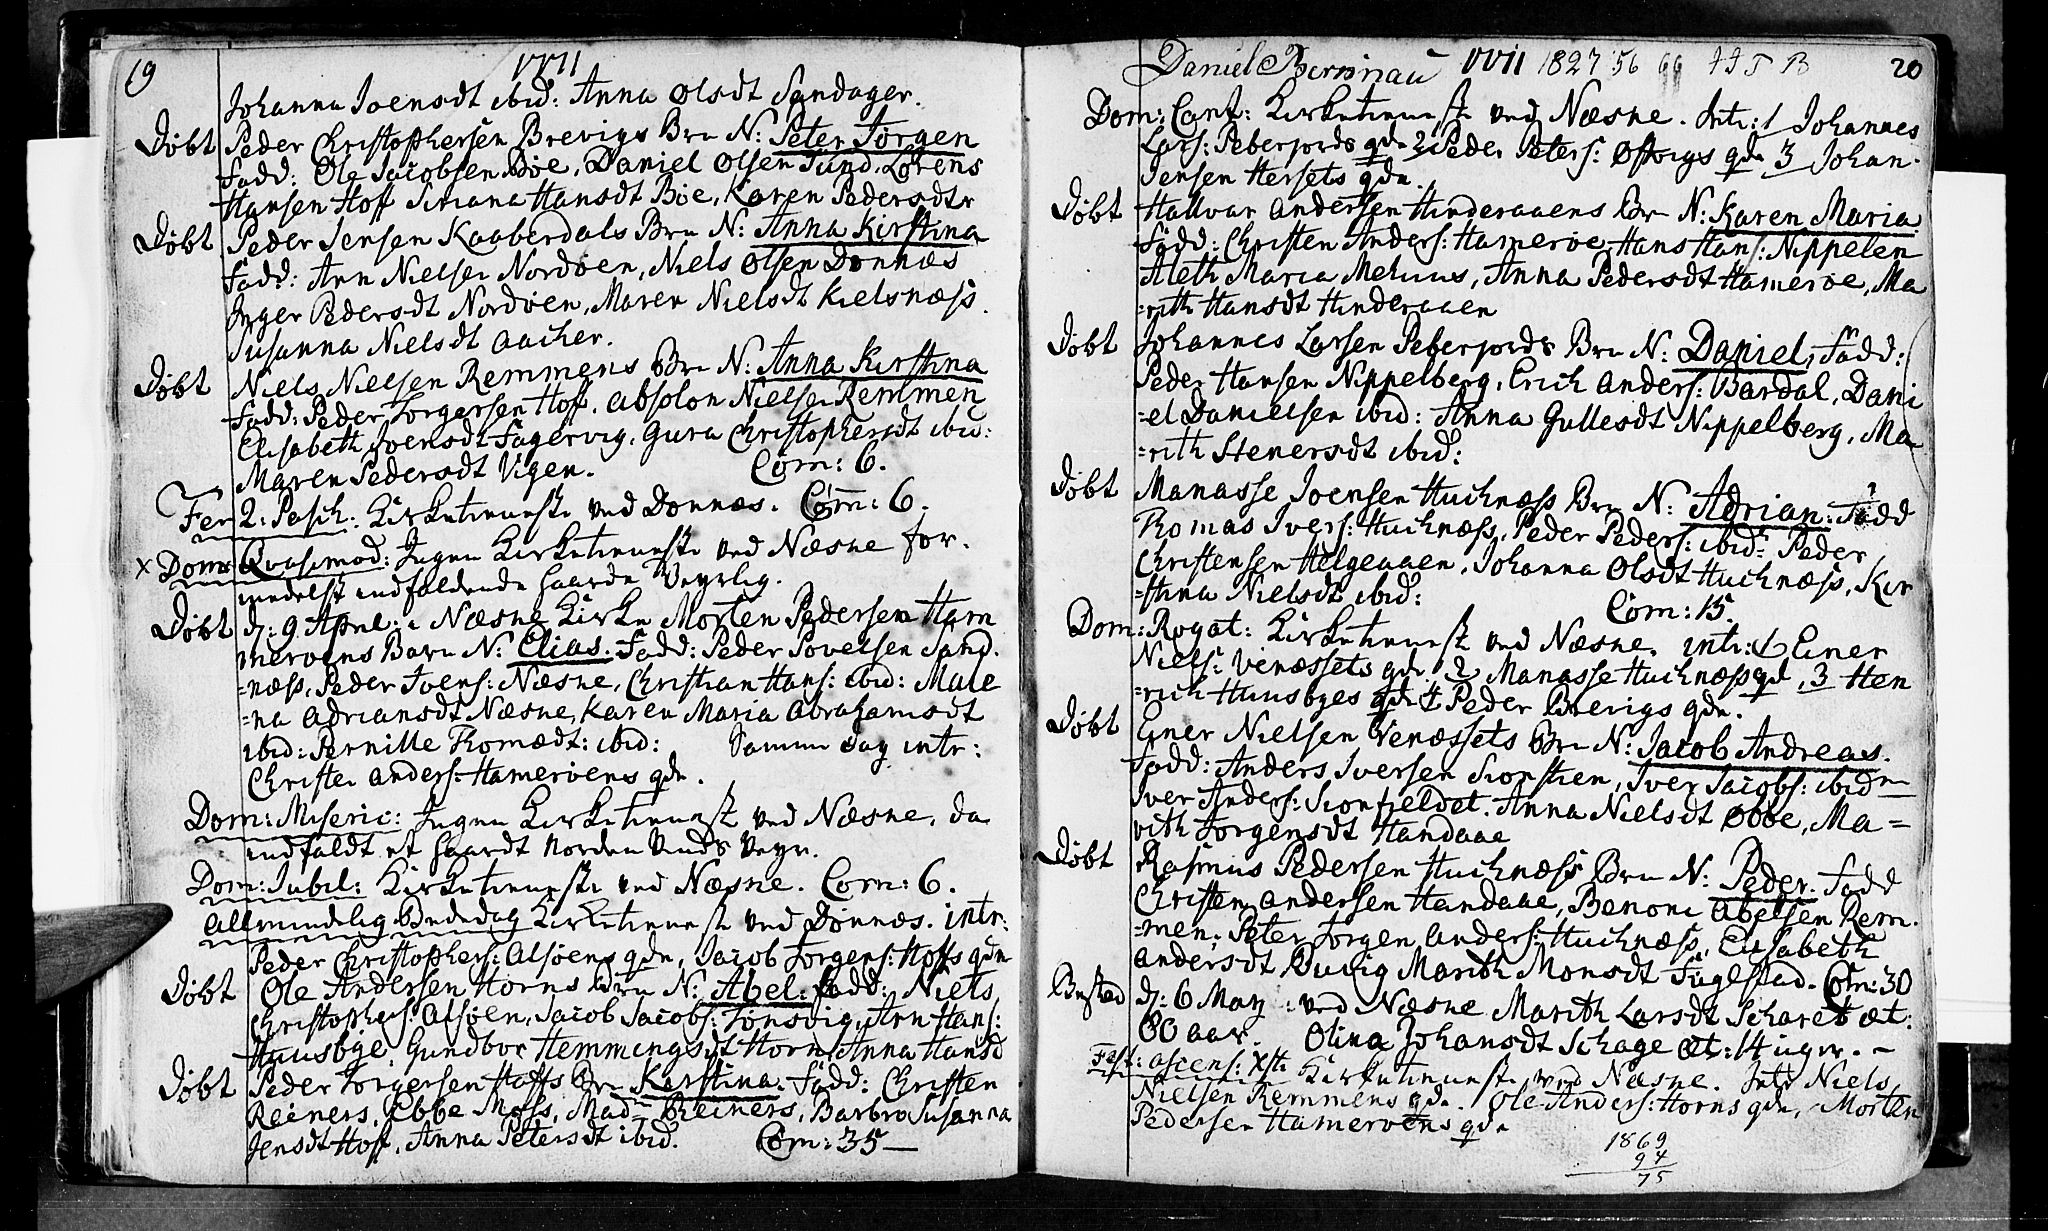 19
1771
Johanna Joensdt ibid: Anna Olsdt Sandager.
Döbt Peder Christophersen Brevigs Brn N: Peter Jörgen
Fadd: Ole Jacobsen Böe, Daniel Olsen Sund, Lorens
Hansen Hoff Simana Hansdt Böe, Karen Pedersdtr
Döbt Peder Jensen Kaaberdals Brn N: Anna Kirstina
Fadd: Arn Nielsen Nordöen, Niels Olsen Dönnæs
Inger Pedersdt Nordöen, Maren Nielsdt Kielsnæss.
Susanna Nielsdt Aacher.
Döbt Niels Nielsen Remmens Brn N: Anna Kirstina
Fadd: Peder Jörgensen Hoff. Absolon Nielsen Remmen
Elisabeth Joensdt Fagervig, Gura Christophersdt ibid:
Maren Pedersdt Vigen. Com: 6.
Fer 2: Pasch: Kirketieneste ved Dönnæs. Com: 6.
x Dom: Qvasimod: Ingen Kirketieneste ved Næsne for-
medelst indfaldende haarde Veyrlig.
Döbt d: 9 April: i Næsne Kirke Morten Pedersen Ham
meröens Barn N: Elias. Fadd: Peder Povelsen Sand-
=næss, Peder Ivers: Næsne, Christian Hans: ibid: Male
=na Adriansdt Næsne, Karen Maria Abrahamsdt
ibid: Pernille Thomædt: ibid: Samme dag intr:
Christen Anders: Hameröens qde.
Dom: Miseric: Ingen Kirketieneste ved Næsne, da
indfaldt et haardt Norden Vinds Veyr.
Dom: Jubil: Kirketieneste ved Næsne. Com: 6.
Allmindelig Bededag Kirketieneste ved Dönnæs. intr:
Peder Christophers: Alsöens qde, Jacob Jörgens: Hoffs qde
Döbt Ole Andersen Horns Brn N: Abel: Fadd: Niels
Christophers: Alsöen, Jacob Jacobs: Tönsvig, Arn Hans:
Huusbye, Gundbor Hemmingsdt Horn, Anna Hansd
Döbt Peder Jörgensen Hoffs Brn Kirstina. Fadd: Christen
Reiners, Ebbe Moss, Madm Reiners, Barbro Susanna
Jensdt Hoff, Anna Petersdt ibid. Com: 35 —
Daniel 1771 1827 56 20
Dom: Cant: Kirketieneste ved Næsne. Intr: 1 Johannes
Lars: Peberfjords qde 2 Peder Peters: qde 3 Johan
Jensen Hersets qde.
Döbt Hallvar Andersen Hinderaaens Brn N: Karen Maria
Fadd: Christen Anders: Hameröe, Hans Hans: Nippelen
Aleth Maria Mehuus, Anna Pedersdt Hameröe, Ma
=rith Hansdt Hinderaaen
Döbt Johannes Larsen Peberfjords Brn N: Daniel, Fadd:
Peder Hansen Nippelberg, Erich Anders: Bardal, Dani
=el Danielsen ibid: Anna Gullesdt Nippelberg, Ma
=rith Stenersdt ibid:
Döbt Manasse Joensen Huchnæss Brn N: Adrian: Fadd
Thomas Ivers: Huchnæss, Peder Peders: ibid: Peder
Christensen Helgeaaen, Johanna Olsdt Huchnæss, Kir
=stina Nielsdt ibid: Com: 15.
Dom: Rogat: Kirketieneste ved Næsne. intr: 1 Einer
Niels: Venæssets qde. 2 Manasse Huchnæss qd, 3 Hen
=rich Huusbyes qde 4 Peder Brevigs qde.
Döbt Einer Nielsen Venæssets Brn N: Jacob Andreas.
Fadd: Anders Iversen Sionstien, Iver Jacobs: ibidm
Iver Anders: Sionfieldet. Anna Nielsdt Obbe, Ma=
rith Jörgensdt Handaae
Döbt Rasmus Pedersen Huchnæss Brn N: Peder. Fadd
Christen Andersen Handaae, Benoni Abelsen Rem-
=men. Peter Jörgen Anders: Huchnæss, Elisabeth
Andersdt Marith Monsdt Fuglstad. Com: 30
Begravd d: 6 May ved Næsne Marith Larsdt Scharet æt:
80 aar. Olina Johansdt Schage æt: 14 uger. -
Fest: ascens: Xsti Kirketieneste ved Næsne. Intr Niels
Nielsen Remmens qde. Ole Anders: Horns qde, Morten
Pedersen Hameröens qde
1869
94
75